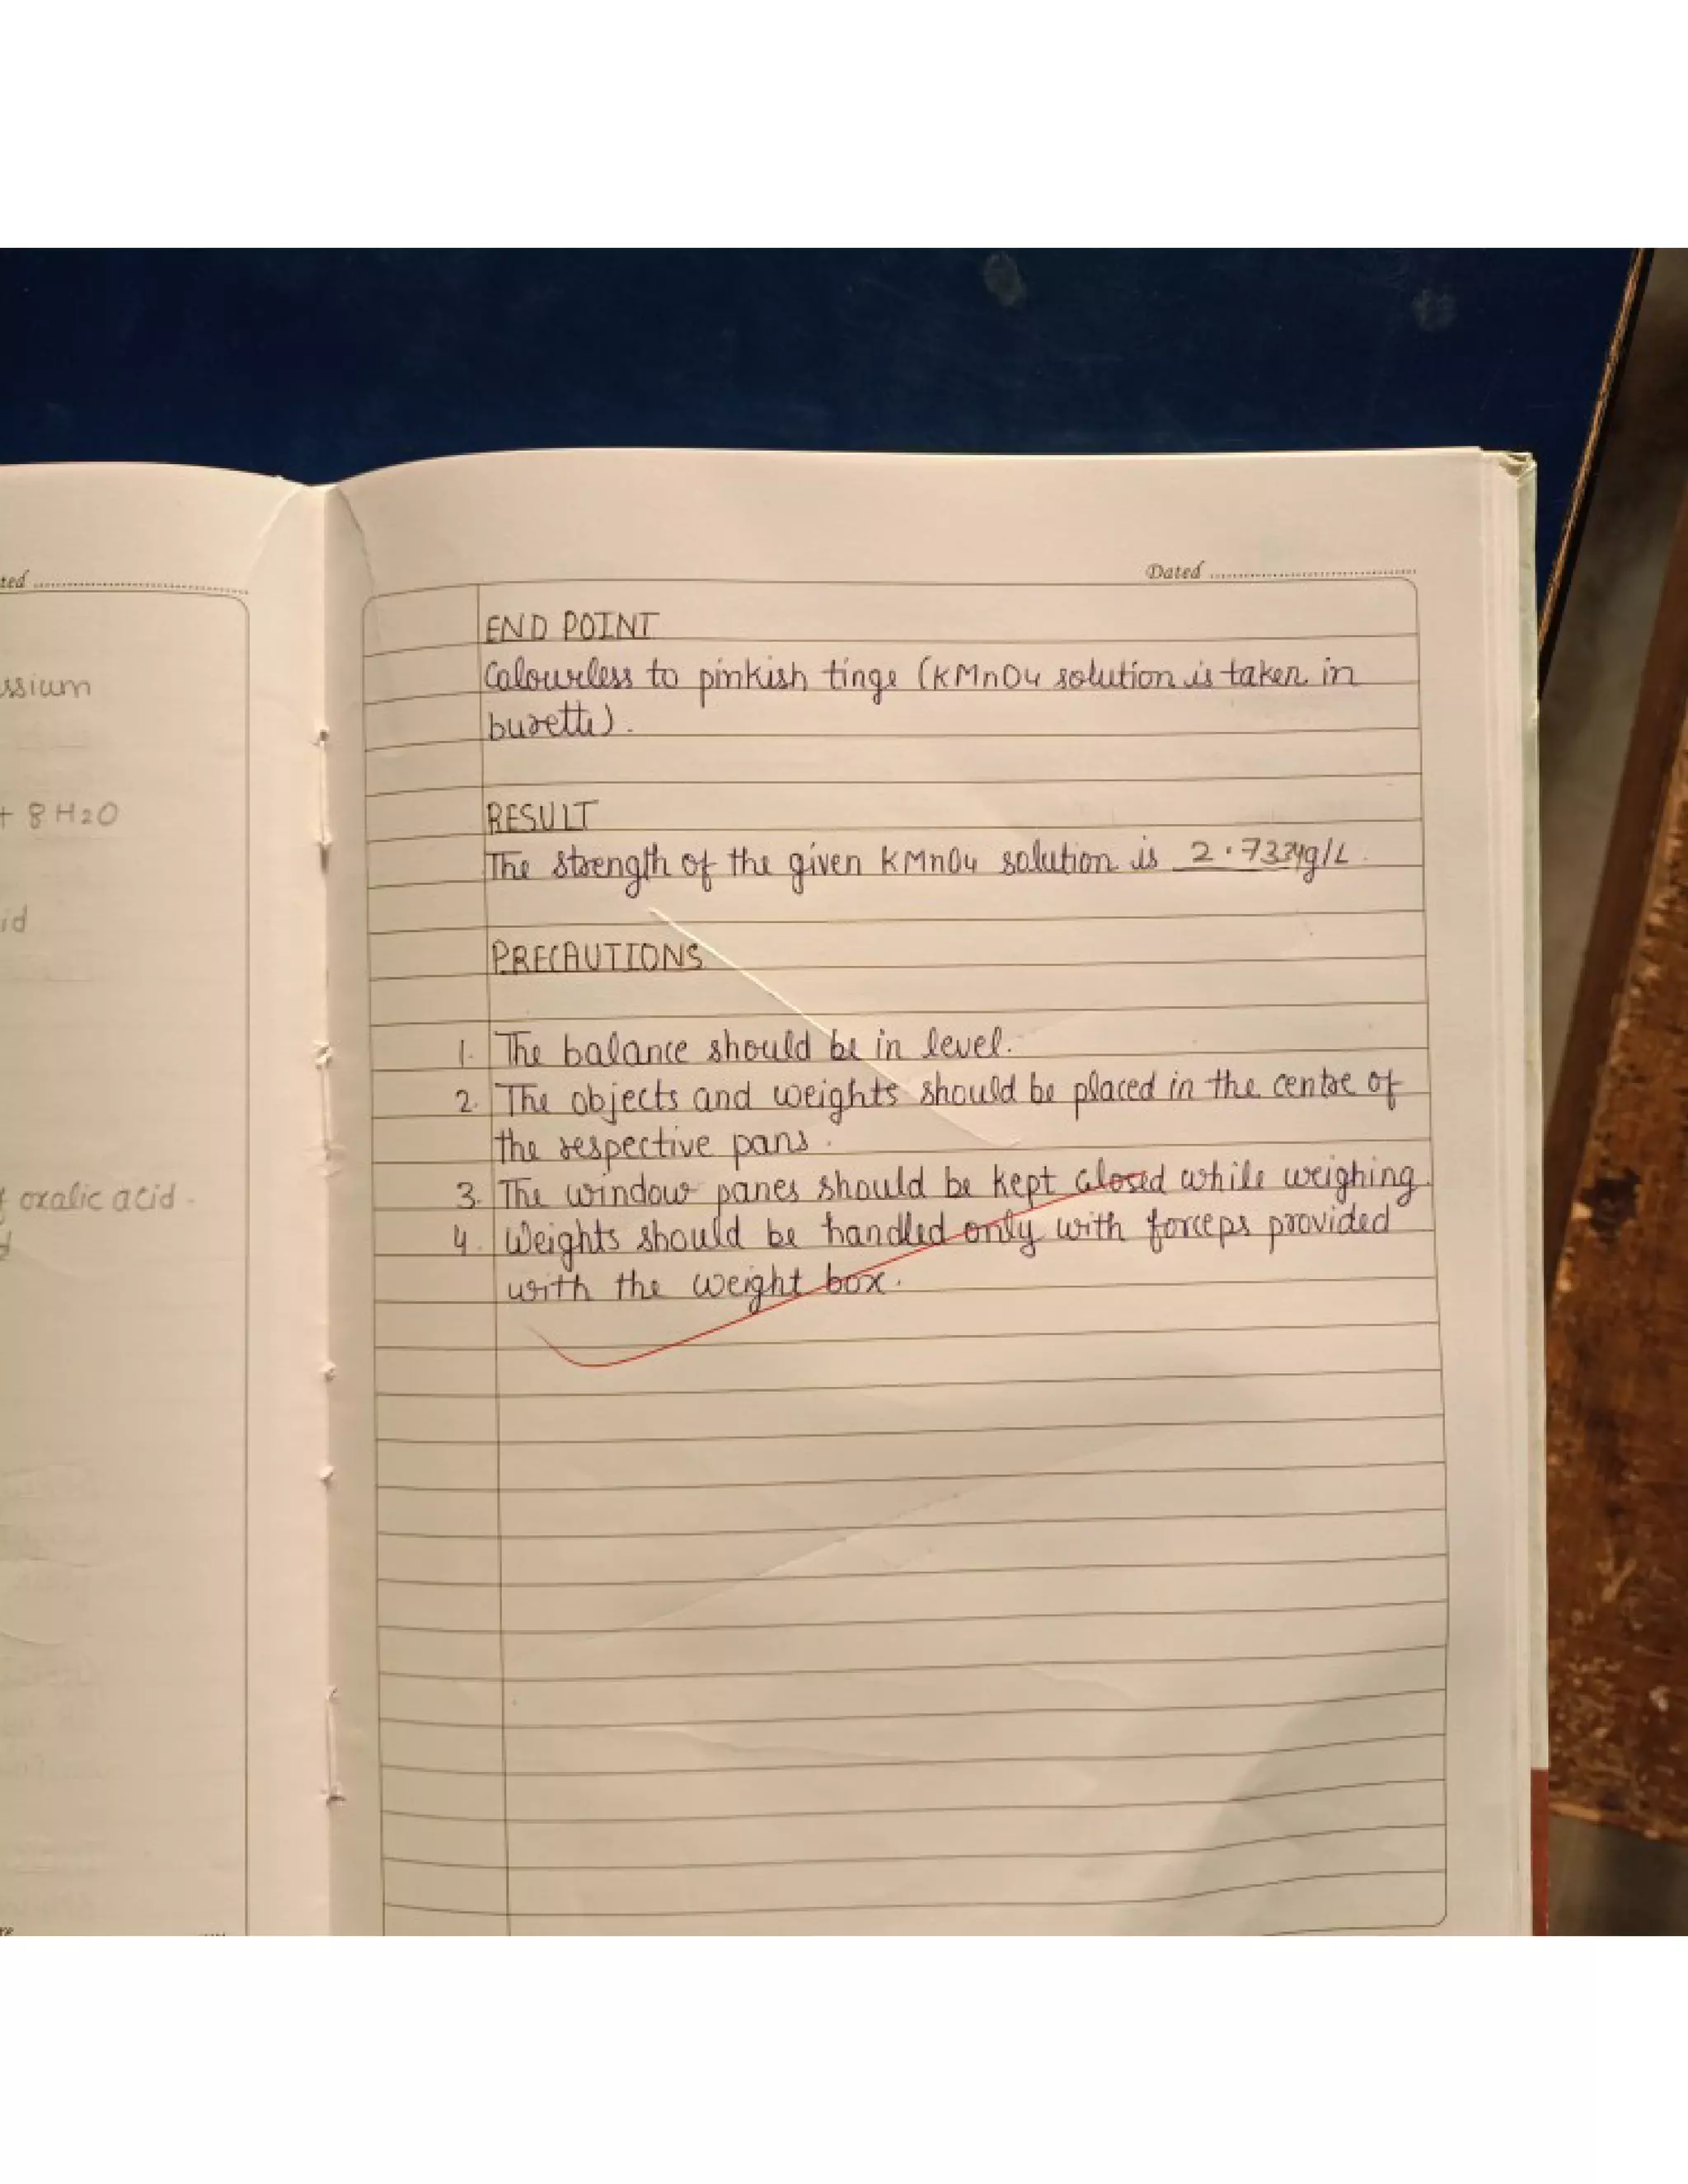 ssium
+ 8 H2O
id
oxalic acid.
Dated
END POINT
Colourless to pinkish tinge (KMnO4 solution is taken in
burette).
RESULT
The strength of the given KMnO4 solution is g/L.
PRECAUTIONS
1. The balance should be in level.
2. The objects and weights should be placed in the centre of
the respective pans.
3. The window panes should be kept closed while weighing.
4. Weights should be handled only with forceps provided
with the weight box.